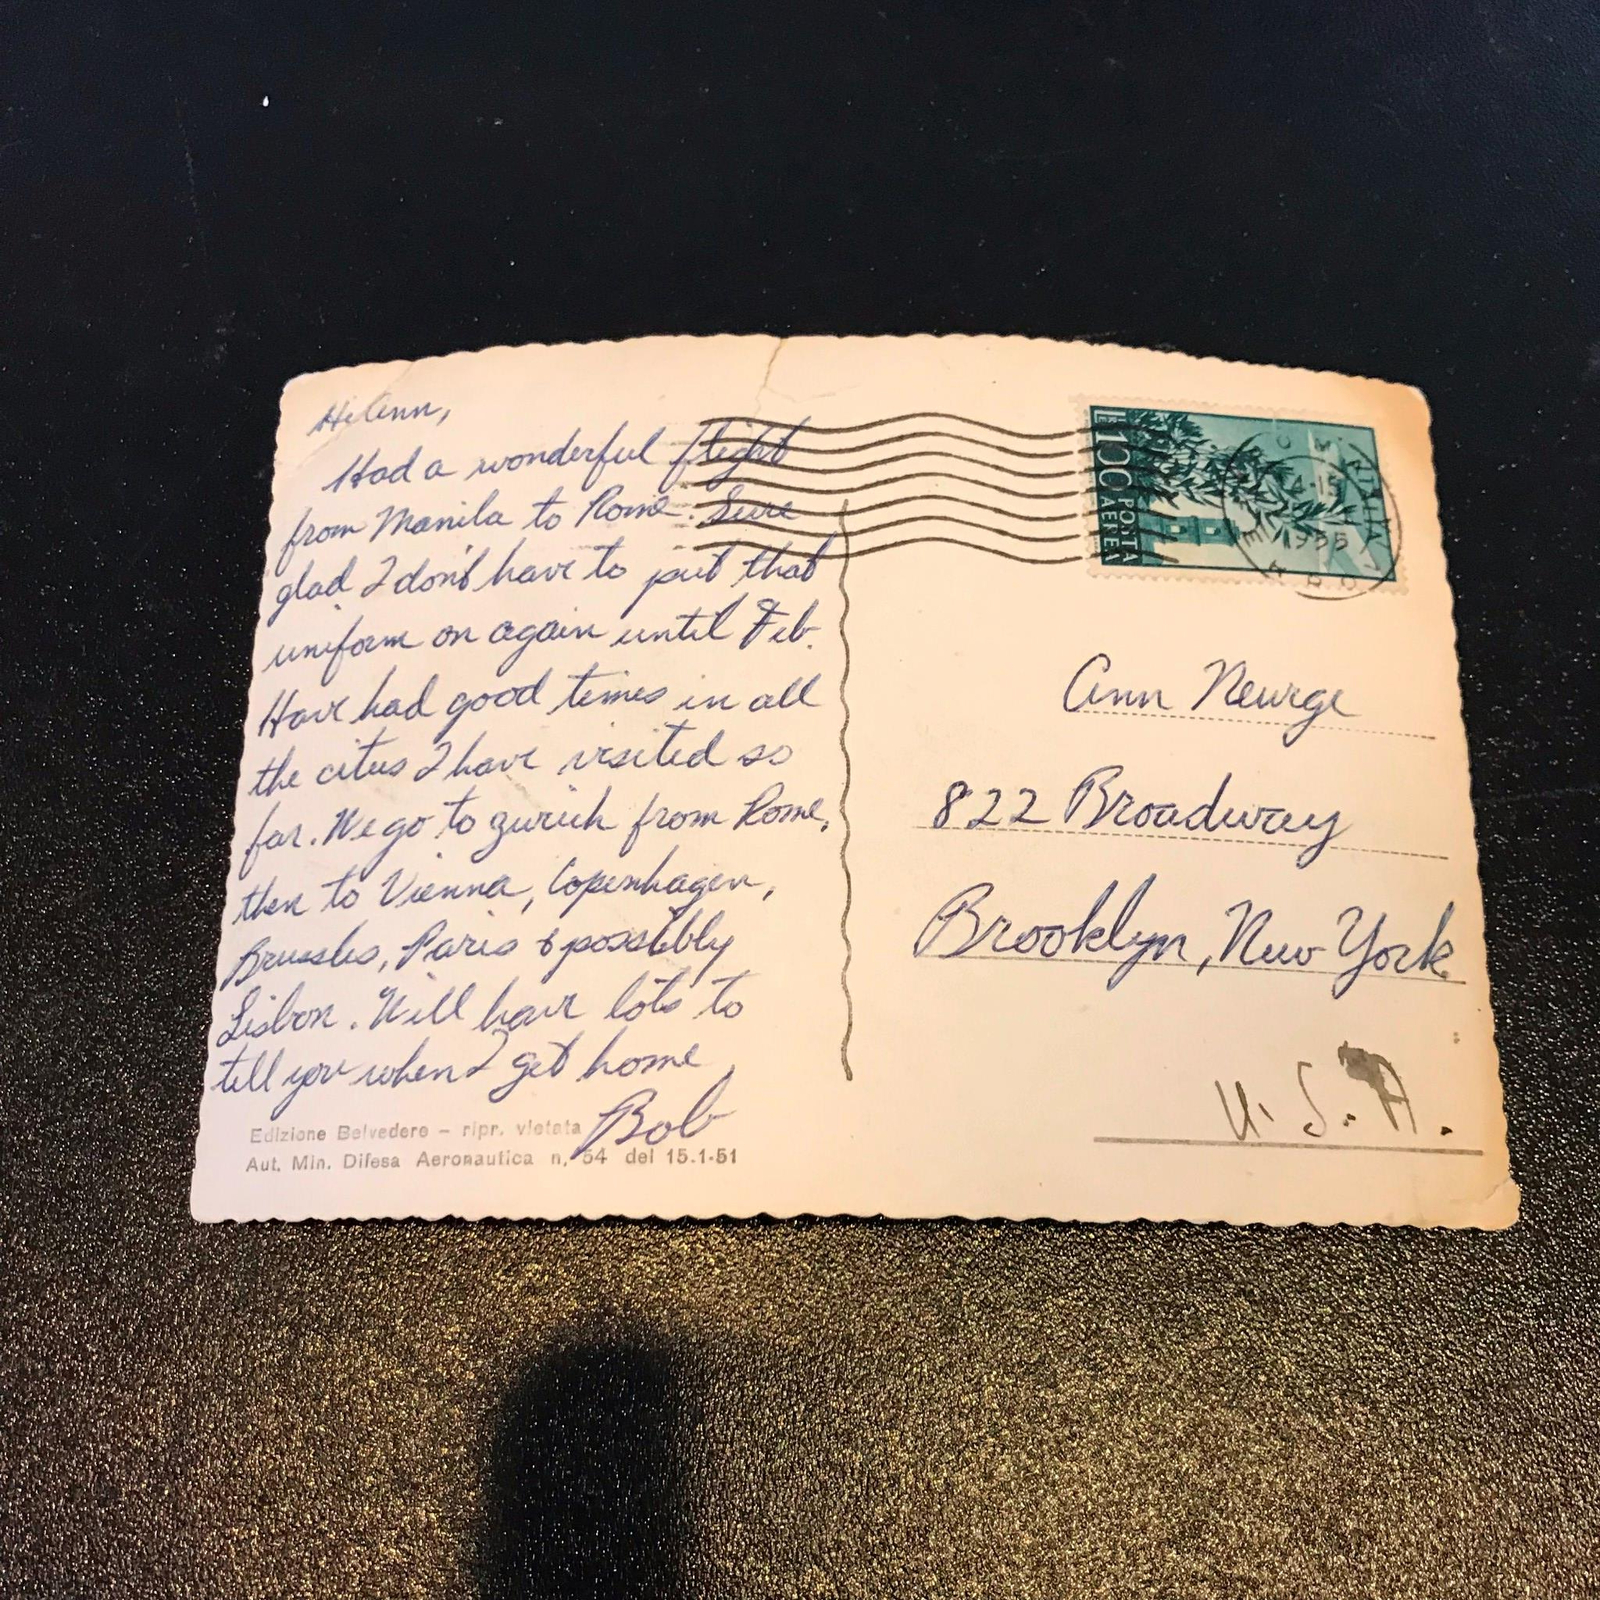 Hi Ann,
Had a wonderful flight
from Manila to Rome. Sure
glad I don't have to put that
uniform on again until Feb.
Have had good times in all
the cities I have visited so
far. We go to Zurich from Rome,
then to Vienna, Copenhagen,
Brussles, Paris & possibly
Lisbon. Will have lots to
tell you when I get home
Bob
Edizione Belvedere - ripr. vietata
Aut. Min. Difesa Aeronautica n. 54 del 15.1-51
L.100 POSTA AEREA
1955
Ann Neurge
822 Broadway
Brooklyn, New York
U.S.A.